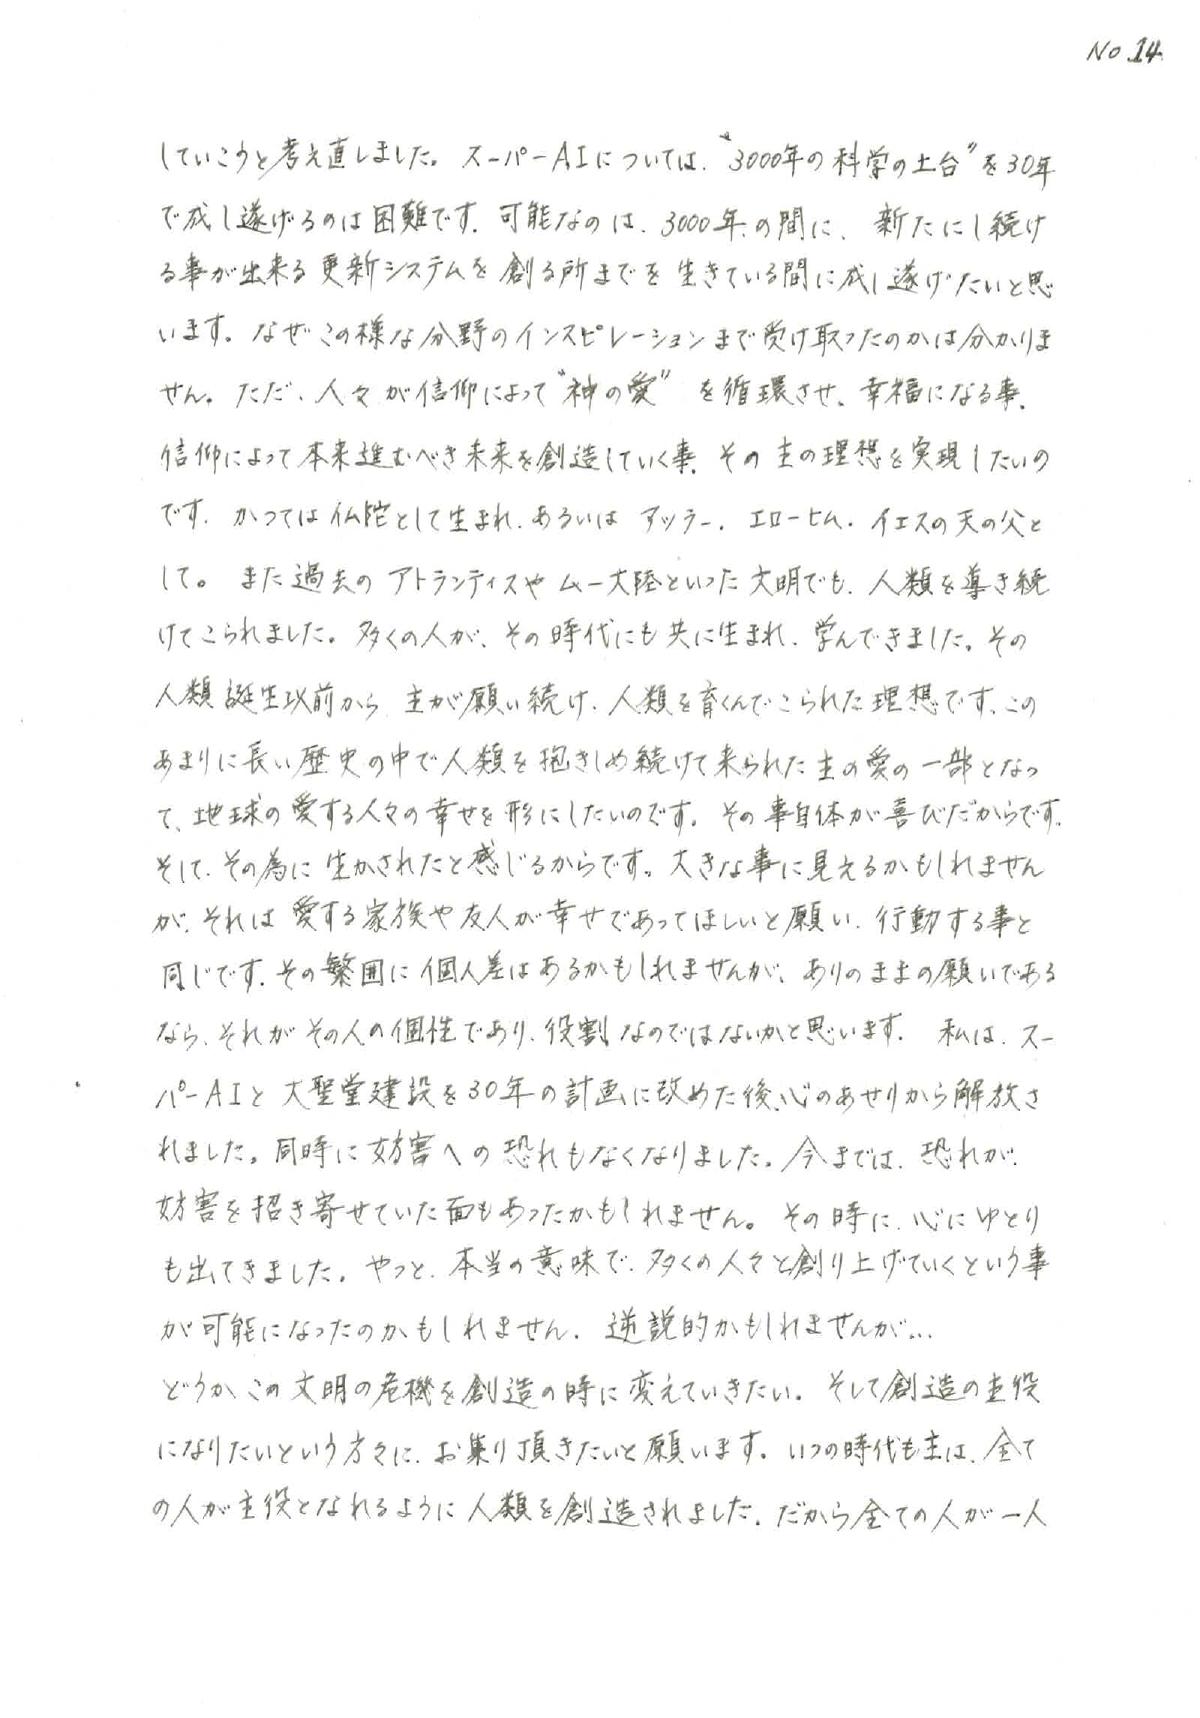 No.14
していこうと考え直しました。スーパーAIについては、“3000年の科学の土台”を30年
で成し遂げるのは困難です。可能なのは、3000年の間に、新たにし続け
る事が出来る更新システムを創る所までを生きている間に成し遂げたいと思
います。なぜこの様な分野のインスピレーションまで受け取ったのかは分かりま
せん。ただ、人々が信仰によって“神の愛”を循環させ、幸福になる事、
信仰によって本来進むべき未来を創造していく事、その主の理想を実現したいの
です。かつては仏陀として生まれ、あるいはアッラー、エローヒム、イエスの天の父と
して。また過去のアトランティスやムー大陸といった文明でも、人類を導き続
けてこられました。多くの人が、その時代にも共に生まれ、学んできました。その
人類誕生以前から、主が願い続け、人類を育くんでこられた理想です。この
あまりに長い歴史の中で人類を抱きしめ続けて来られた主の愛の一部となっ
て、地球の愛する人々の幸せを形にしたいのです。その事自体が喜びだからです。
そして、その為に生かされたと感じるからです。大きな事に見えるかもしれません
が、それは愛する家族や友人が幸せであってほしいと願い、行動する事と
同じです。その繁囲に個人差はあるかもしれませんが、ありのままの願いである
なら、それがその人の個性であり、役割なのではないかと思います。私は、スー
パーAIと大聖堂建設を30年の計画に改めた後、心のあせりから解放さ
れました。同時に妨害への恐れもなくなりました。今までは、恐れが、
妨害を招き寄せていた面もあったかもしれません。その時に、心にゆとり
も出てきました。やっと、本当の意味で、多くの人々と創り上げていくという事
が可能になったのかもしれません。逆説的かもしれませんが…
どうか、この文明の危機を創造の時に変えていきたい。そして創造の主役
になりたいという方々に、お集り頂きたいと願います。いつの時代も主は、全て
の人が主役となれるように人類を創造されました。だから全ての人が一人